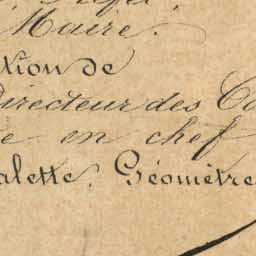 Maire.
tion de
Directeur des Co
re en chef
alette, Géomètre